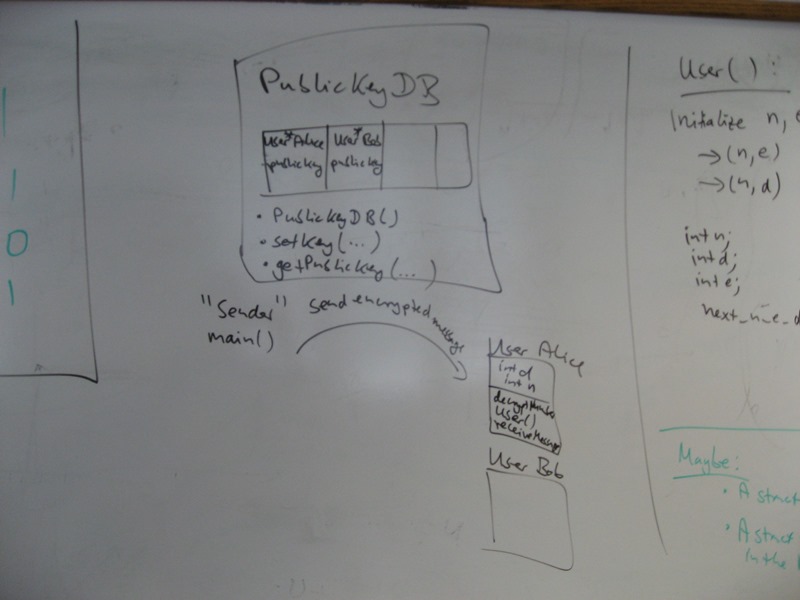 1
1
0
1
PublicKeyDB
User* Alice User* Bob
publickey publickey
• PublicKeyDB()
• setKey(...)
• getPublicKey(...)
"Sender" send encrypted message
main()
User Alice
int d
int n
User()
receiveMessage
User Bob
User():
Initialize n, e
→(n,e)
→(n,d)
int n;
int d;
int e;
next_n_e_d
Maybe:
• A struct
• A struct
in the